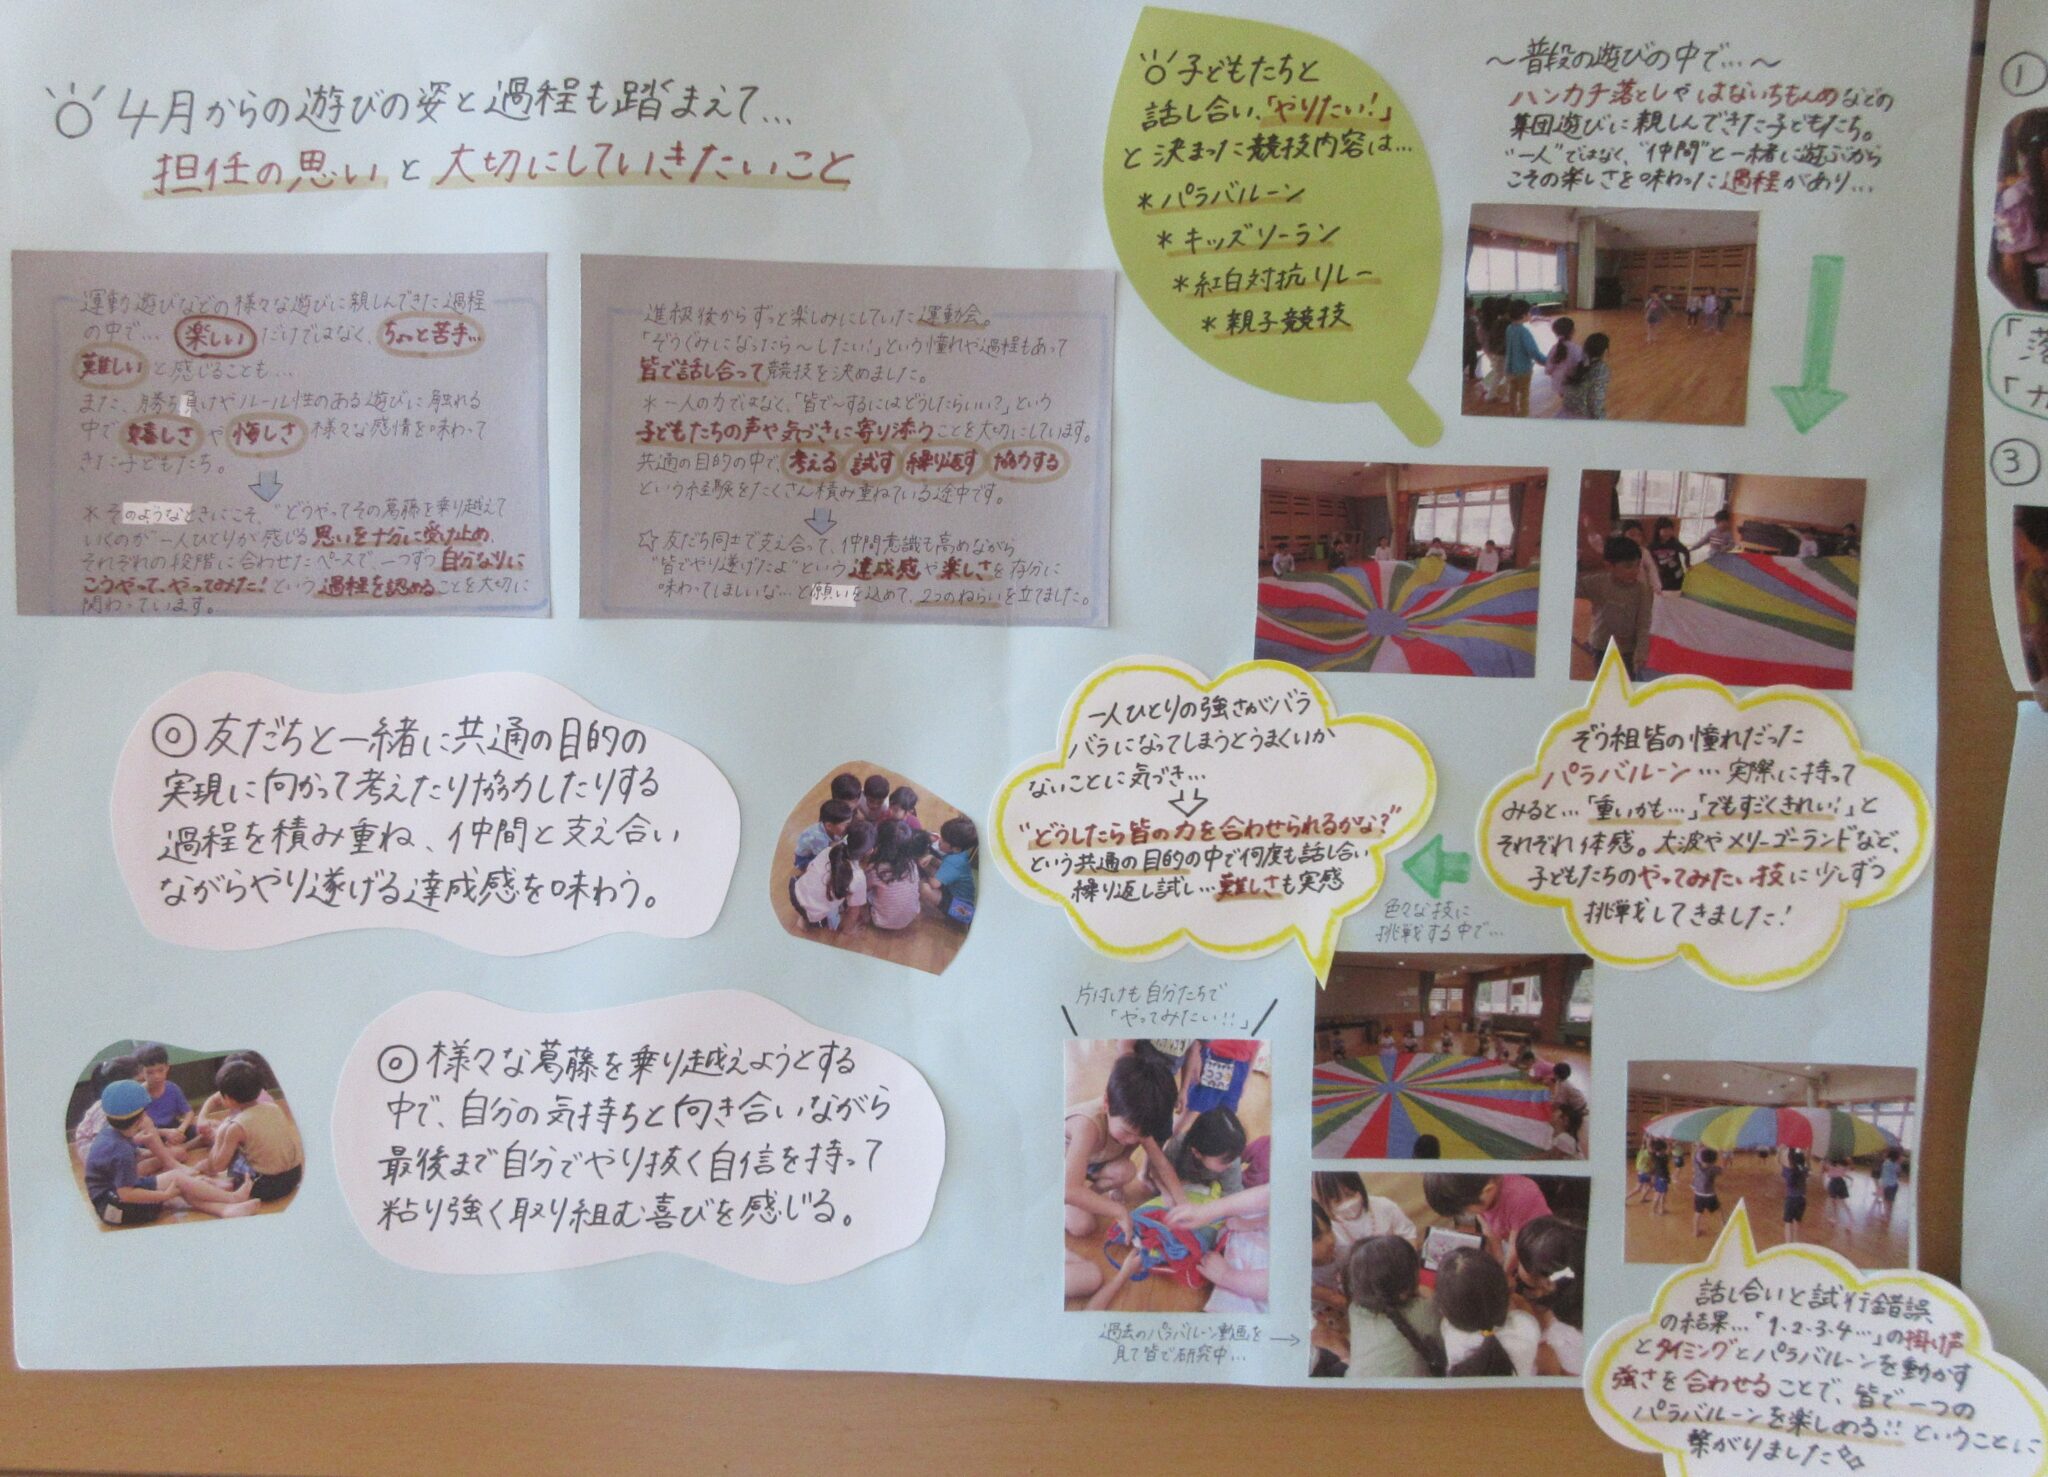 4月からの遊びの姿と過程も踏まえて...
担任の思いと大切にしていきたいこと
運動遊びなどの様々な遊びに親しんできた過程
の中で... 楽しい だけではなく、ちょっと苦手...
難しい と感じることも...
また、勝ち負けやルール性のある遊びに触れる
中で 嬉しさ や 悔しさ 様々な感情を味わって
きた子どもたち。
＊そのようなときにこそ、"どうやってその葛藤を乗り越えて
いくのか"一人ひとりが感じる思いを十分に受け止め、
それぞれの段階に合わせたペースで、一つずつ自分なりに
こうやって、やってみた!という過程を認めることを大切に
関わっています。
進級後からずっと楽しみにしていた運動会。
「ぞうぐみになったら〜したい!」という憧れや過程もあって
皆で話し合って競技を決めました。
＊一人の力ではなく、「皆で〜するにはどうしたらいい?」という
子どもたちの声や気づきに寄り添うことを大切にしています。
共通の目的の中で、考える 試す 繰り返す 協力する
という経験をたくさん積み重ねている途中です。
☆友だち同士で支え合って、仲間意識も高めながら
"皆でやり遂げたよ"という達成感や楽しさを存分に
味わってほしいな...と願いを込めて、2つのねらいを立てました。
◎友だちと一緒に共通の目的の
実現に向かって考えたり協力したりする
過程を積み重ね、仲間と支え合い
ながらやり遂げる達成感を味わう。
◎様々な葛藤を乗り越えようとする
中で、自分の気持ちと向き合いながら
最後まで自分でやり抜く自信を持って
粘り強く取り組む喜びを感じる。
子どもたちと
話し合い、「やりたい!」
と決まった競技内容は...
＊パラバルーン
＊キッズソーラン
＊紅白対抗リレー
＊親子競技
〜普段の遊びの中で...〜
ハンカチ落としやはないちもんめなどの
集団遊びに親しんできた子どもたち。
"一人"ではなく、"仲間"と一緒に遊ぶから
こその楽しさを味わった過程があり...
ぞう組皆の憧れだった
パラバルーン...実際に持って
みると...「重いかも...」「でもすごくきれい!」と
それぞれ体感。大波やメリーゴーランドなど、
子どもたちのやってみたい技に少しずつ
挑戦してきました!
色々な技に
挑戦する中で...
一人ひとりの強さがバラ
バラになってしまうとうまくいか
ないことに気づき...
"どうしたら皆の力を合わせられるかな?"
という共通の目的の中で何度も話し合い
繰り返し試し...難しさも実感
片付けも自分たちで
「やってみたい!!」
過去のパラバルーン動画を
見て皆で研究中...
話し合いと試行錯誤
の結果...「1・2・3・4...」の掛け声
とタイミングとパラバルーンを動かす
強さを合わせることで、皆で一つの
パラバルーンを楽しめる!!ということに
繋がりました
①
③